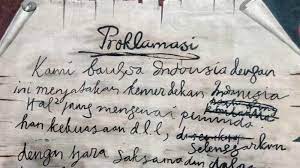 Proklamasi
Kami bangsa Indonesia dengan
ini menjatakan kemerdekaan Indonesia
Hal² jang mengenai peminda
han kekuasaan d.l.l.,
dengan tjara saksama dan